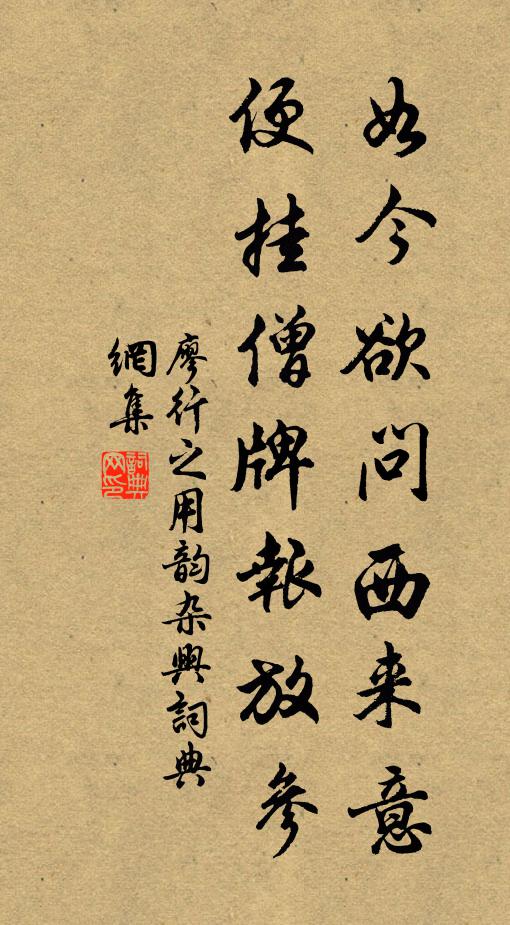 如今欲问西来意
便挂僧牌報放參
廖行之用韵杂興詞典
網集
詞典
网印